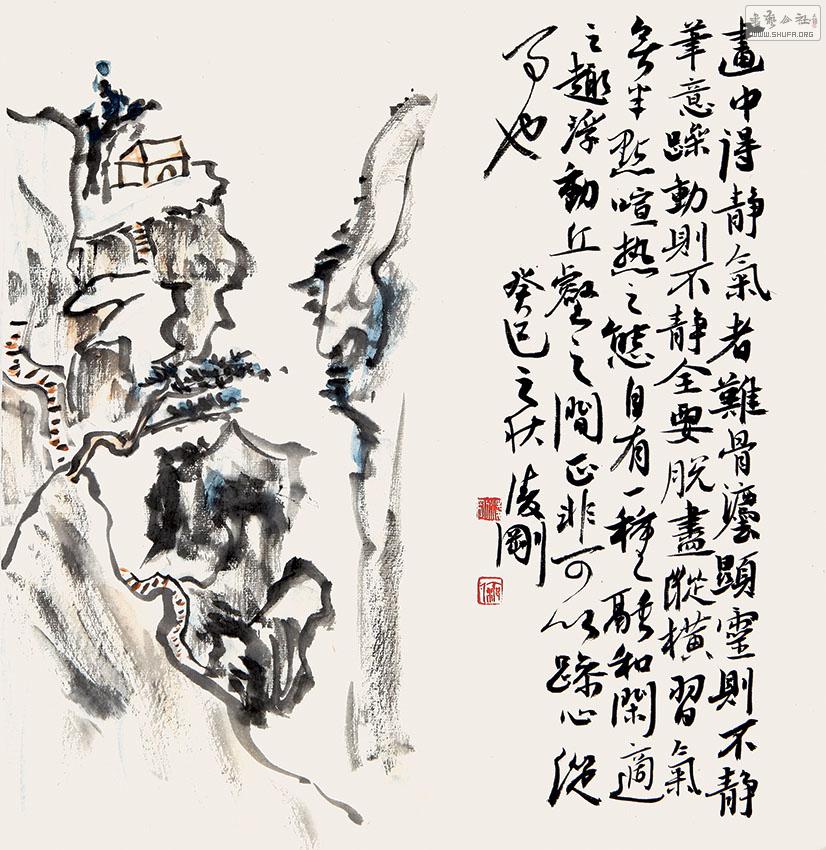 畫中得静氣者難骨瀍顯靈則不静
筆意躁動則不静全要脱盡縱横習氣
無半點喧热之態自有一種融和閑適
之趣浮動丘壑之間正非可以躁心從
事也
癸巳之秋凌剛
書藝公社
WWW.SHUFA.ORG